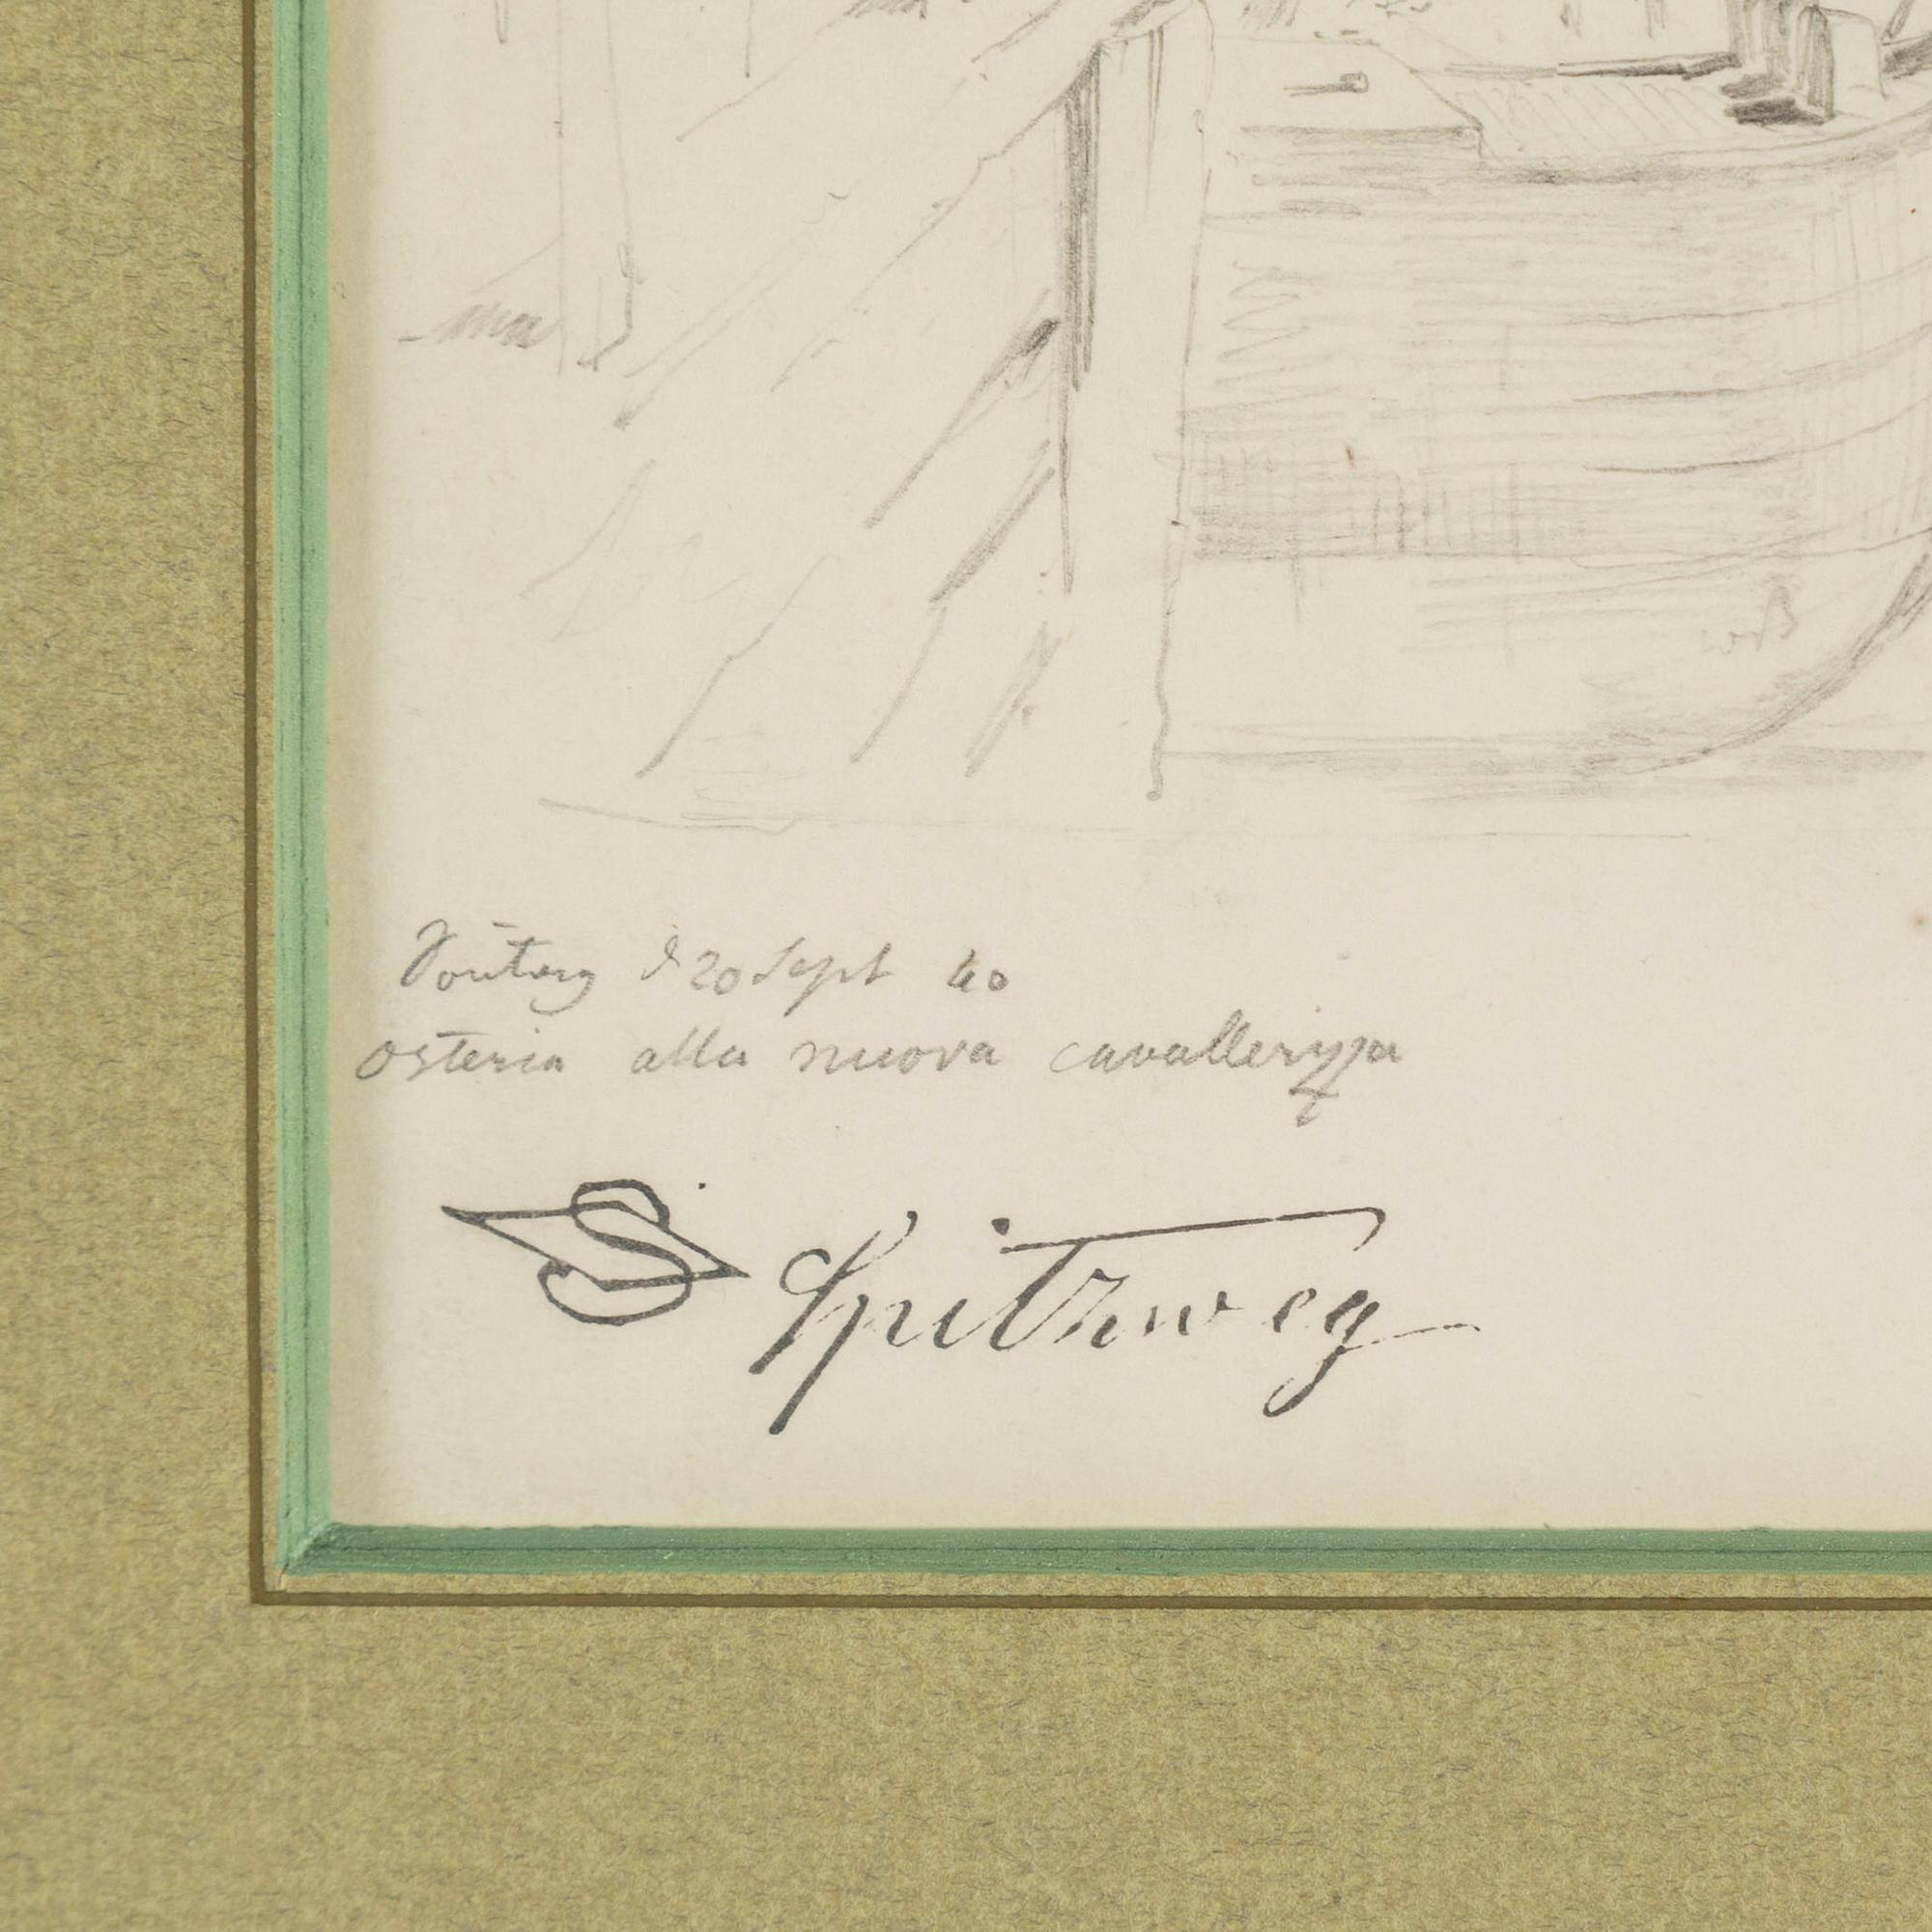 Soñtag d 20 Sept 40
osteria alla nuova cavallerizza
S Spitzweg